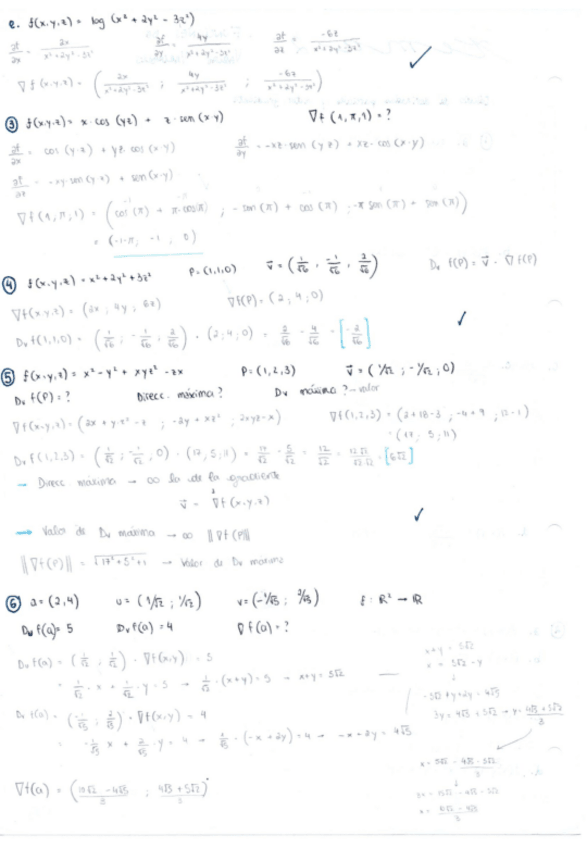 e. f(x.y.z) = log (x² + 2y² - 3z²)
∂f/∂x = 2x/(x²+2y²-3z²)   ∂f/∂y = 4y/(x²+2y²-3z²)   ∂f/∂z = -6z/(x²+2y²-3z²)
∇f (x.y.z) = (2x/(x²+2y²-3z²) ; 4y/(x²+2y²-3z²) ; -6z/(x²+2y²-3z²))
③ f(x.y.z) = x·cos (yz) + z·sen (x y)   ∇f (1,π,1) = ?
∂f/∂x = cos (y.z) + yz cos (x.y)   ∂f/∂y = -xz·sen (y z) + xz·cos (x·y)
∂f/∂z = -xy·sen (y z) + sen (x.y)
∇f (1,π,1) = (cos (π) + π·cos(π) ; -sen (π) + cos (π) ; -π sen (π) + sen (π))
= (-1-π, -1, 0)
④ f(x.y.z) = x² + 2y² + 3z²   P = (1,1,0)   v⃗ = (1/√6 , -1/√6 , 2/√6)   Dv f(P) = v⃗ · ∇f(P)
∇f(x.y.z) = (2x, 4y, 6z)   ∇f(P) = (2, 4, 0)
Dv f(1,1,0) = (1/√6 ; -1/√6 , 2/√6) · (2, 4, 0) = 2/√6 - 4/√6 = [-2/√6]
⑤ f(x.y.z) = x² - y² + xyz² - zx   P = (1,2,3)   v⃗ = (1/√2 ; -1/√2 ; 0)
Dv f(P) = ?   Direcc. máxima?   Dv máximo? → valor
∇f(x.y.z) = (2x + y.z² - z ; -2y + xz² ; 2xyz-x)   ∇f(1,2,3) = (2+18-3 ; -4+9 ; 12-1)
= (17, 5, 11)
Dv f(1,2,3) = (1/√2 ; -1/√2 , 0) · (17, 5, 11) = 17/√2 - 5/√2 = 12/√2 = 12√2/√2√2 = [6√2]
→ Direcc máxima → ∞ la de la gradiente
v⃗ = ∇f (x.y.z)
→ Valor de Dv máxima → ∞ ||∇f (P)||
||∇f (P)|| = √17² + 5² + 1 → Valor de Dv máxima
⑥ a = (2,4)   u = (1/√2 ; 1/√2)   v = (-1/√5 ; 2/√5)   f: R² → R
Du f(a) = 5   Dv f(a) = 4   ∇f(a) = ?
Du f(a) = (1/√2 , 1/√2) · ∇f(x,y) = 5
= 1/√2 · x + 1/√2 · y = 5 → 1/√2 · (x+y) = 5 → x+y = 5√2
Dv f(a) = (-1/√5 ; 2/√5) · ∇f(x,y) = 4
= -1/√5 x + 2/√5 · y = 4 → 1/√5 · (-x + 2y) = 4 → -x + 2y = 4√5
x+y = 5√2
x = 5√2 - y
-5√2 + y + 2y = 4√5
3y = 4√5 + 5√2 → y = (4√5 + 5√2)/3
x = 5√2 - (4√5 - 5√2)/3
3x = 15√2 - 4√5 - 5√2
∇f(a) = (10√2 - 4√5/3 ; 4√5 + 5√2/3)